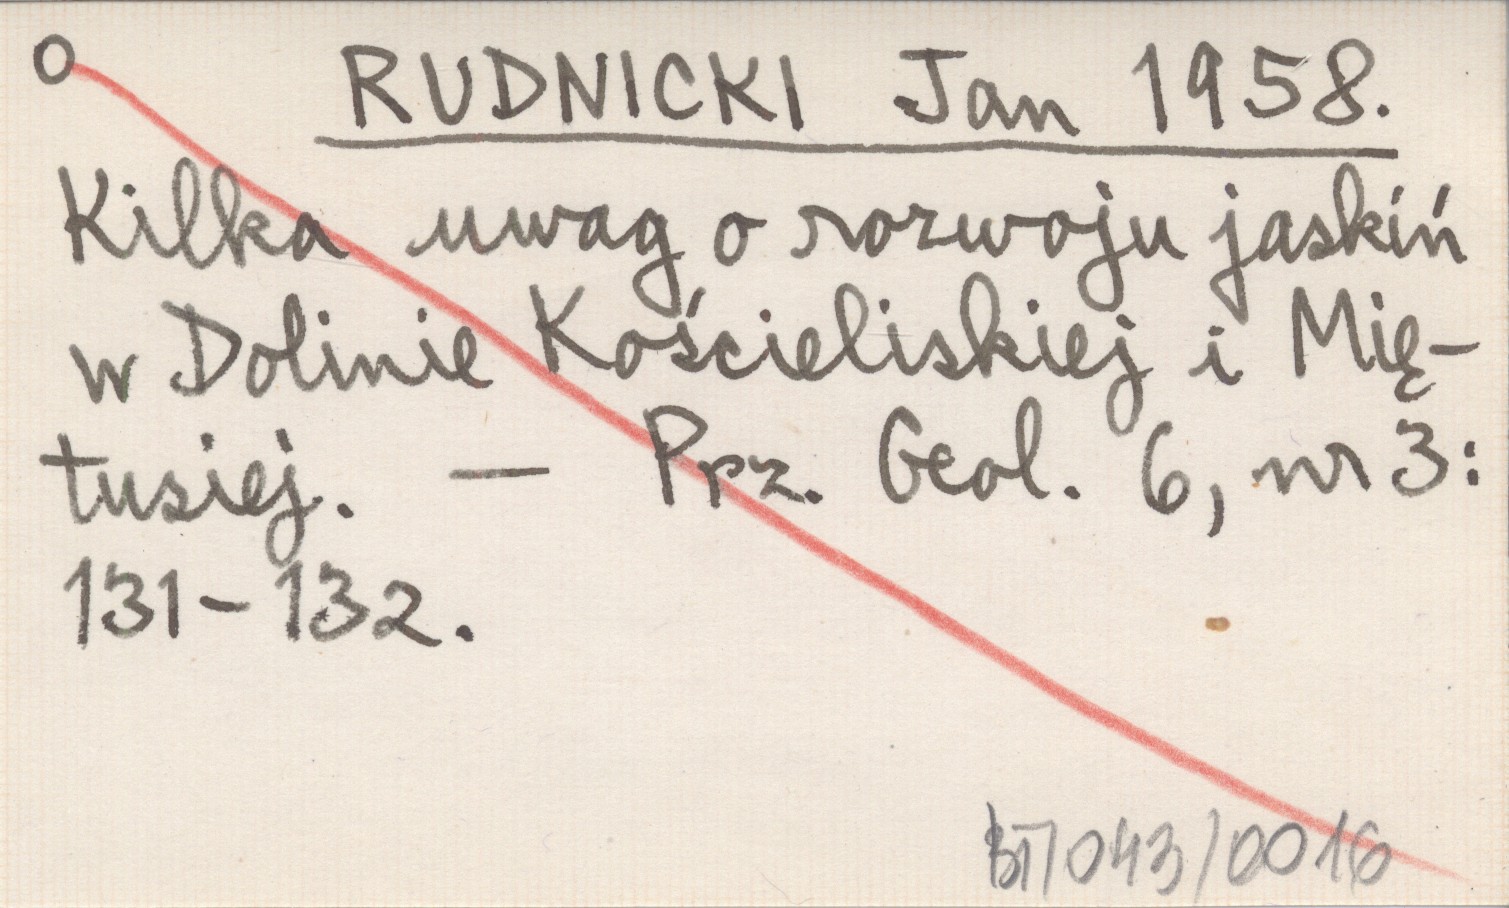 O RUDNICKI Jan 1958.
Kilka uwag o rozwoju jaskiń
w Dolinie Kościeliskiej i Mię-
tusiej. — Prz. Geol. 6, nr 3:
131-132.
BT/043/0016